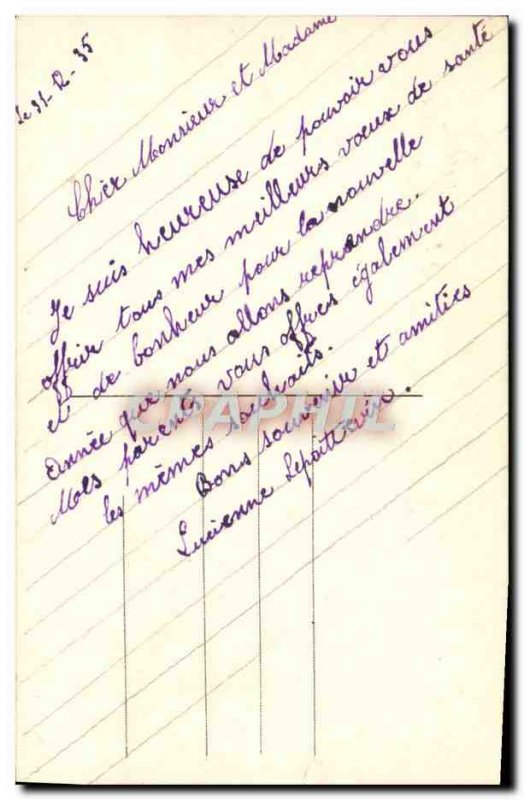 le 31-12-35
Cher Monsieur et Madame
Je suis heureuse de pouvoir vous
offrir tous mes meilleurs voeux de santé
et de bonheur pour la nouvelle
année que nous allons reprandre.
Mes parents vous offres également
les mêmes souhaits.
Bons souvenir et amitiés
Lucienne
CPAPHIL